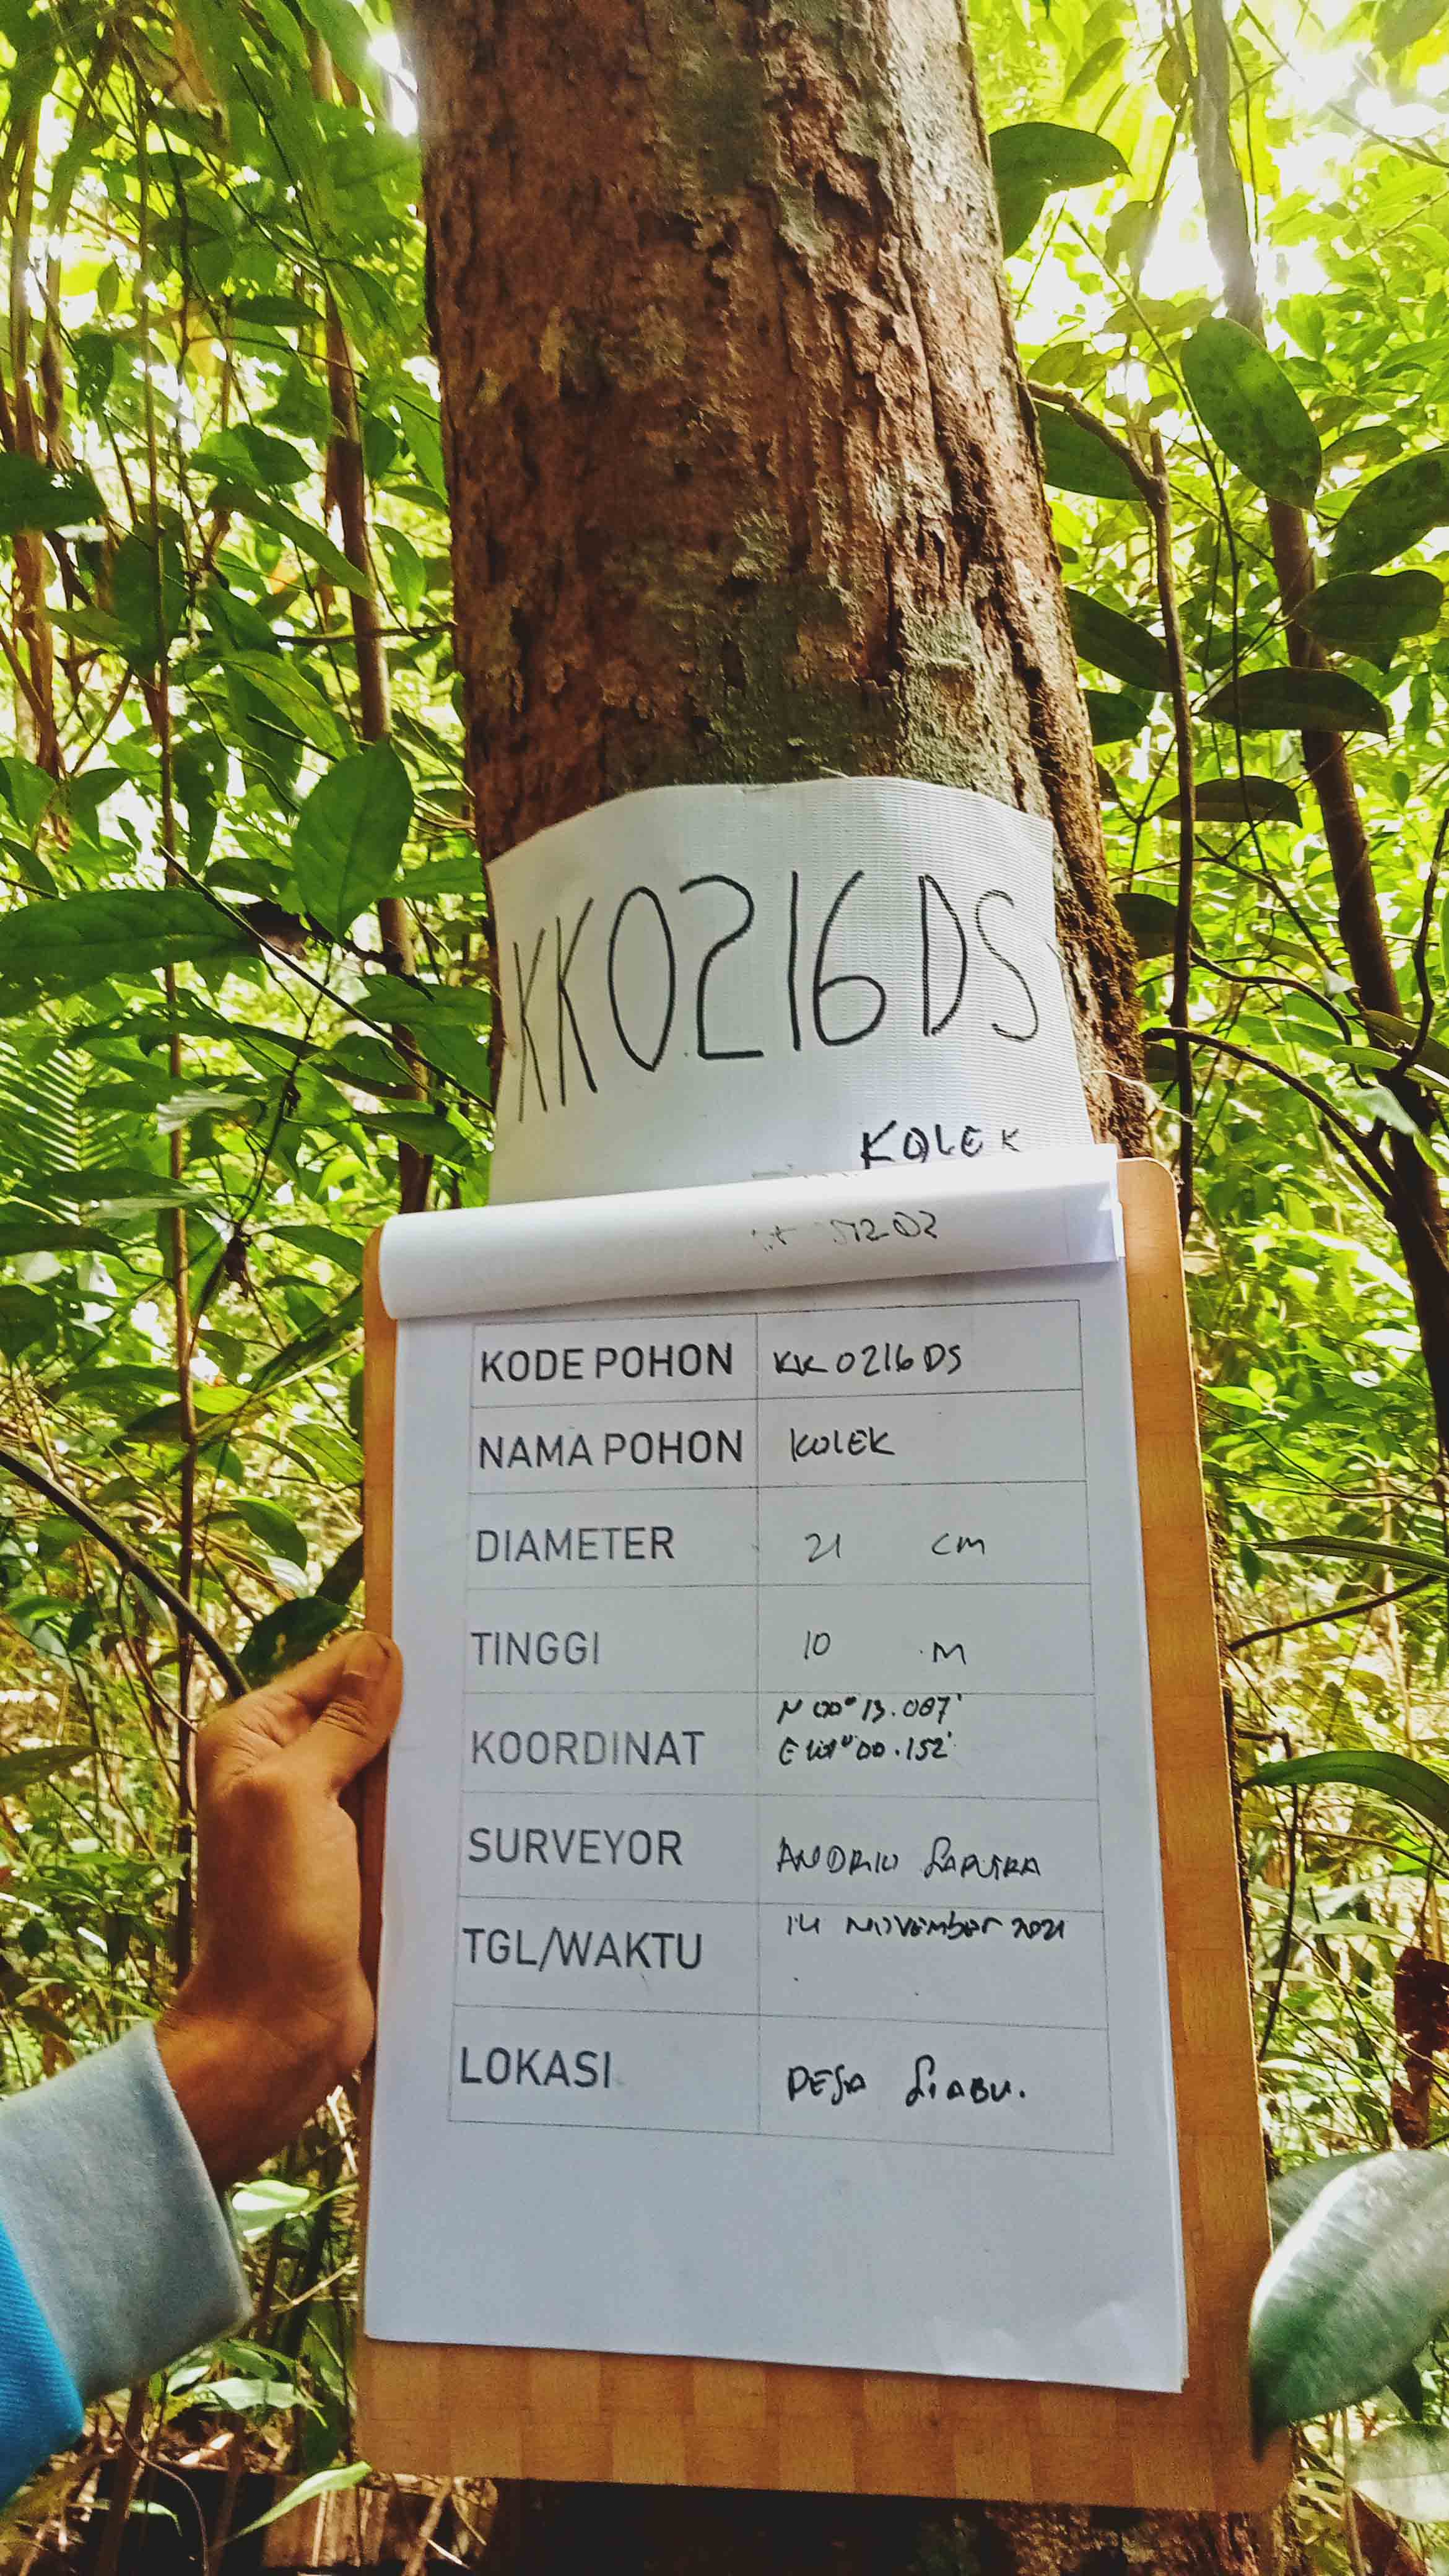 KK0216DS
KOLEK
KODE POHON KK0216DS
NAMA POHON KOLEK
DIAMETER 21 cm
TINGGI 10 M
KOORDINAT N 00° 13.087'
E 101° 00.152'
SURVEYOR SAPUTRA
TGL/WAKTU 14 NOVEMBER 2021
LOKASI DESA SIABU.